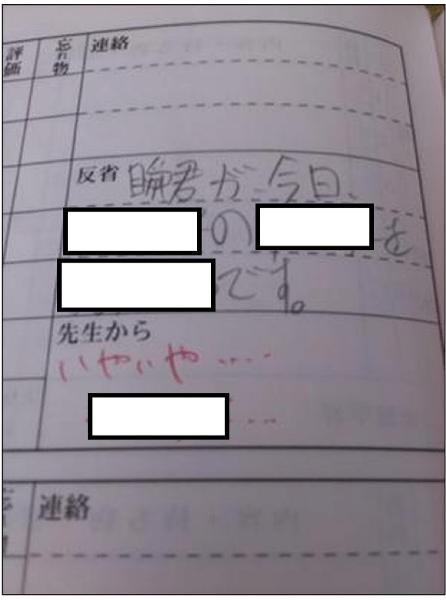 評価
忘れ物
連絡
反省
瞬君が今日、
の を
です。
先生から
いやいや‥‥
‥
連絡